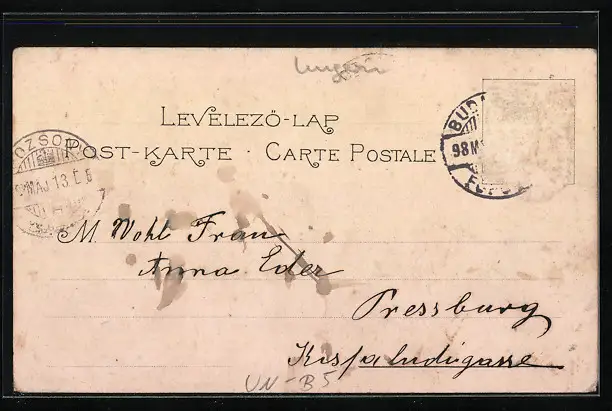 Ungarn
LEVELEZŐ-LAP
POST-KARTE · CARTE POSTALE
BUDA
98 M
OZSO
MÁJ 13
M. Wohl Frau
Anna Eder
Pressburg
Kisfaludigasse
UN-B5